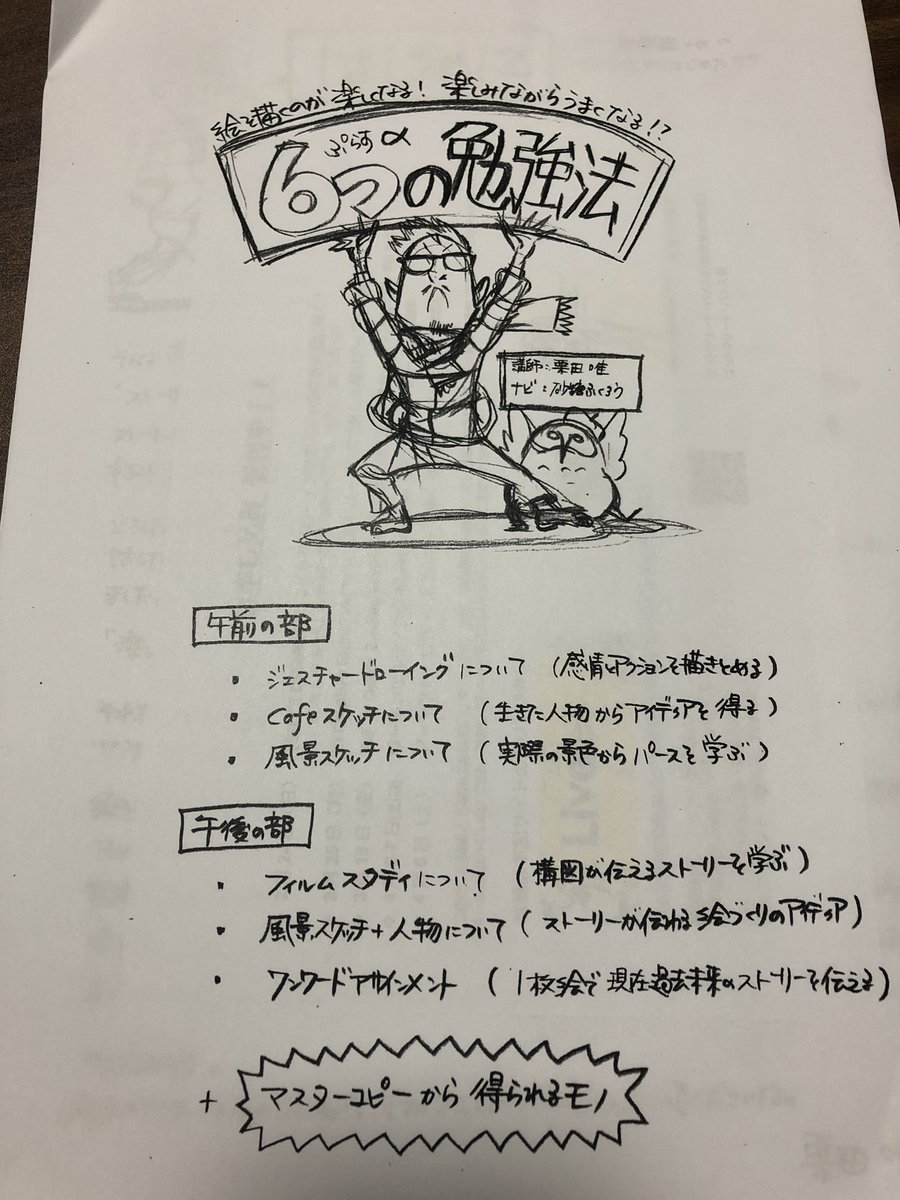 絵を描くのが楽しくなる！楽しみながらうまくなる！？
ぷらすα
6つの勉強法
講師：栗田唯
ナビ：砂糖ふくろう
午前の部
・ジェスチャードローイングについて（感情とアクションを描きとめる）
・Cafeスケッチについて（生きた人物からアイディアを得る）
・風景スケッチについて（実際の景色からパースを学ぶ）
午後の部
・フィルムスタディについて（構図が伝えるストーリーを学ぶ）
・風景スケッチ+人物について（ストーリーが伝わる絵づくりのアイディア）
・ワンワードアサインメント（1枚絵で現在過去未来のストーリーを伝える）
+ マスターコピーから得られるモノ